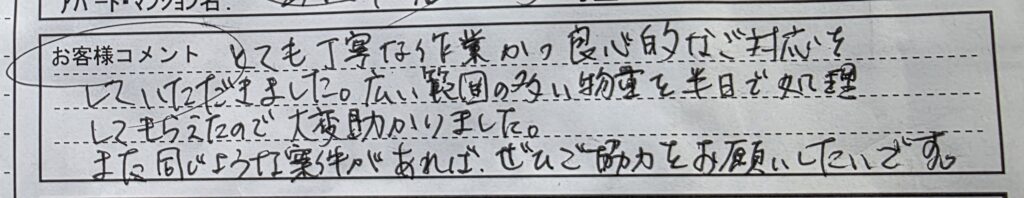 アパート・マンション名:
お客様コメント とても丁寧な作業かつ良心的なご対応を
していただきました。広い範囲の多い物量を半日で処理
してもらえたので大変助かりました。
また同じような案件があれば、ぜひご協力をお願いしたいです。